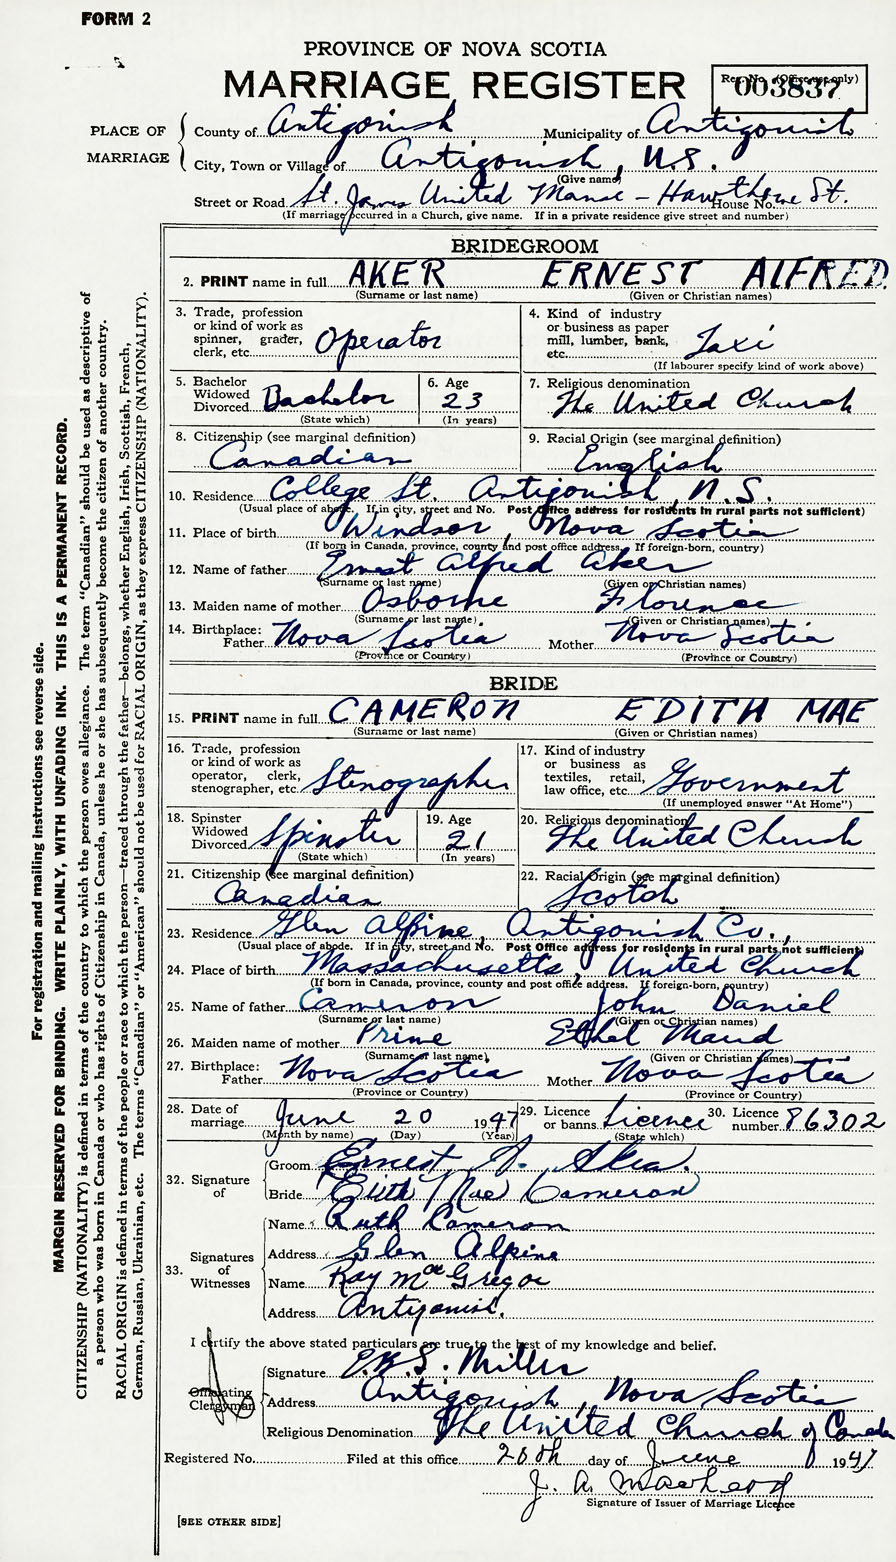 FORM 2
PROVINCE OF NOVA SCOTIA
MARRIAGE REGISTER
Reg. No. (Office use only)
003837
PLACE OF MARRIAGE
County of Antigonish Municipality of Antigonish
City, Town or Village of Antigonish, N.S.
(Give name)
Street or Road St. James United Manse - Hawthorne St. House No.
(If marriage occurred in a Church, give name. If in a private residence give street and number)
BRIDEGROOM
2. PRINT name in full AKER ERNEST ALFRED
(Surname or last name) (Given or Christian names)
3. Trade, profession or kind of work as spinner, grader, clerk, etc. Operator
4. Kind of industry or business as paper mill, lumber, bank, etc. Taxi
(If labourer specify kind of work above)
5. Bachelor Widowed Divorced Bachelor
(State which)
6. Age 23
(In years)
7. Religious denomination
The United Church
8. Citizenship (see marginal definition)
Canadian
9. Racial Origin (see marginal definition)
English
10. Residence College St. Antigonish, N.S.
(Usual place of abode. If in city, street and No. Post Office address for residents in rural parts not sufficient)
11. Place of birth Windsor, Nova Scotia
(If born in Canada, province, county and post office address. If foreign-born, country)
12. Name of father Ernest Alfred Aker
(Surname or last name) (Given or Christian names)
13. Maiden name of mother Osborne Florence
(Surname or last name) (Given or Christian names)
14. Birthplace: Father Nova Scotia Mother Nova Scotia
(Province or Country) (Province or Country)
BRIDE
15. PRINT name in full CAMERON EDITH MAE
(Surname or last name) (Given or Christian names)
16. Trade, profession or kind of work as operator, clerk, stenographer, etc. Stenographer
17. Kind of industry or business as textiles, retail, law office, etc. Government
(If unemployed answer "At Home")
18. Spinster Widowed Divorced Spinster
(State which)
19. Age 21
(In years)
20. Religious denomination
The United Church
21. Citizenship (see marginal definition)
Canadian
22. Racial Origin (see marginal definition)
Scotch
23. Residence Glen Alpine, Antigonish Co.,
(Usual place of abode. If in city, street and No. Post Office address for residents in rural parts not sufficient)
24. Place of birth Massachusetts, United Church
(If born in Canada, province, county and post office address. If foreign-born, country)
25. Name of father Cameron John Daniel
(Surname or last name) (Given or Christian names)
26. Maiden name of mother Prime Ethel Maud
(Surname or last name) (Given or Christian names)
27. Birthplace: Father Nova Scotia Mother Nova Scotia
(Province or Country) (Province or Country)
28. Date of marriage June 20 1947
(Month by name) (Day) (Year)
29. Licence or banns Licence
(State which)
30. Licence number 86302
32. Signature of
Groom Ernest A. Aker.
Bride Edith Mae Cameron
33. Signatures of Witnesses
Name Ruth Cameron
Address Glen Alpine
Name Ray MacGregor
Address Antigonish.
I certify the above stated particulars are true to the best of my knowledge and belief.
Officiating Clergyman
Signature Miller
Address Antigonish, Nova Scotia
Religious Denomination The United Church of Canada
Registered No. Filed at this office 20th day of June 1947
J. A. MacLeod
Signature of Issuer of Marriage Licence
[SEE OTHER SIDE]
For registration and mailing instructions see reverse side.
MARGIN RESERVED FOR BINDING. WRITE PLAINLY, WITH UNFADING INK. THIS IS A PERMANENT RECORD.
CITIZENSHIP (NATIONALITY) is defined in terms of the country to which the person owes allegiance. The term "Canadian" should be used as descriptive of
a person who was born in Canada or who has rights of Citizenship in Canada, unless he or she has subsequently become the citizen of another country.
RACIAL ORIGIN is defined in terms of the people or race to which the person—traced through the father—belongs, whether English, Irish, Scottish, French,
German, Russian, Ukrainian, etc. The terms "Canadian" or "American" should not be used for RACIAL ORIGIN, as they express CITIZENSHIP (NATIONALITY).